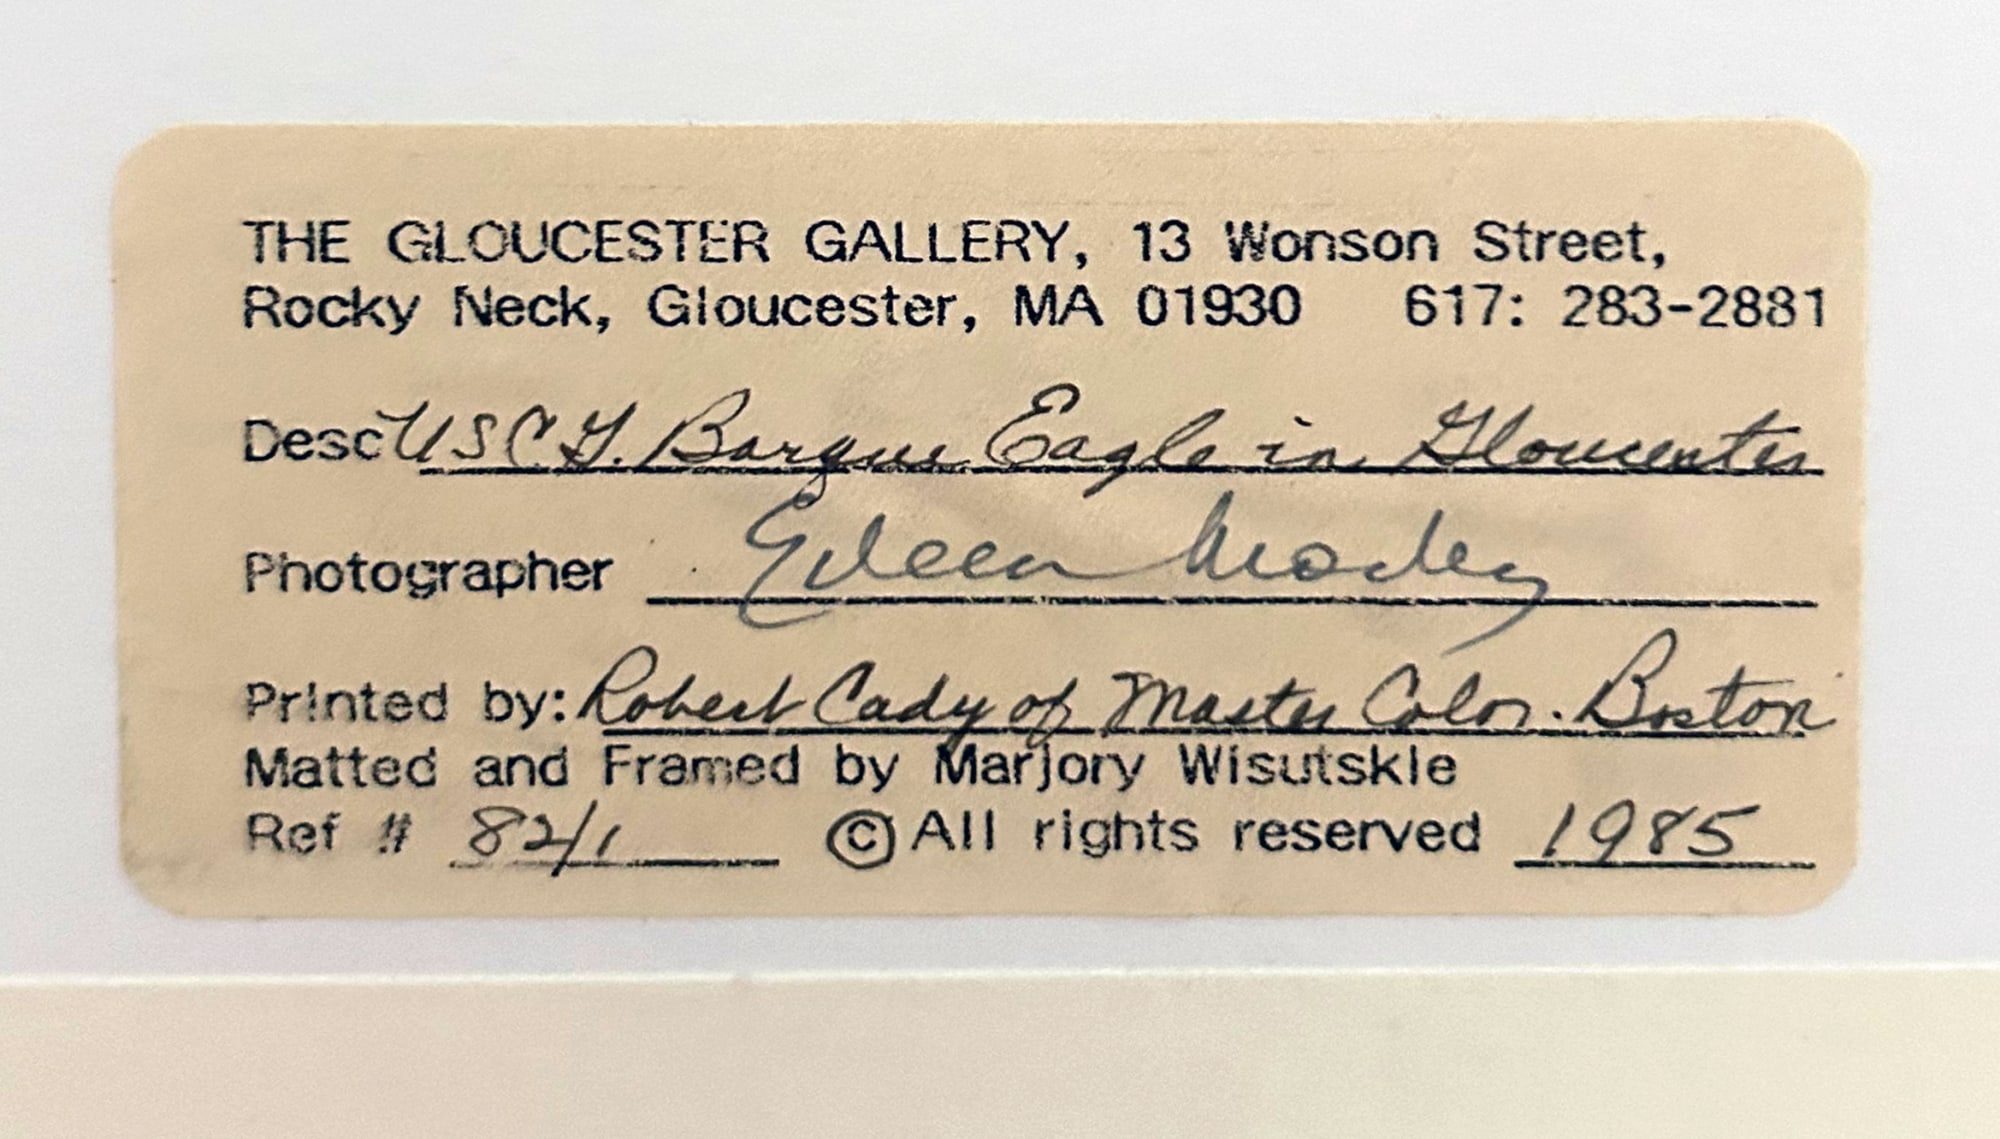 THE GLOUCESTER GALLERY, 13 Wonson Street,
Rocky Neck, Gloucester, MA 01930 617: 283-2881
Desc USCG. Barque Eagle in Gloucester
Photographer Eileen Mosley
Printed by: Robert Cady of Master Color. Boston
Matted and Framed by Marjory Wisutskie
Ref # 82/1 © All rights reserved 1985